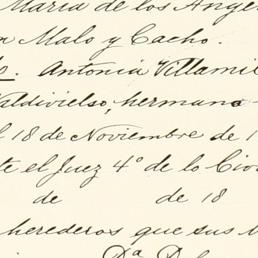 María de los Angel
n Malo y Cacho.
Antonia Villamil
Valdivielso, hermana
l 18 de Noviembre de 1
te el Juez 4º de lo Civi
de de 18
herederos que sus
Dª